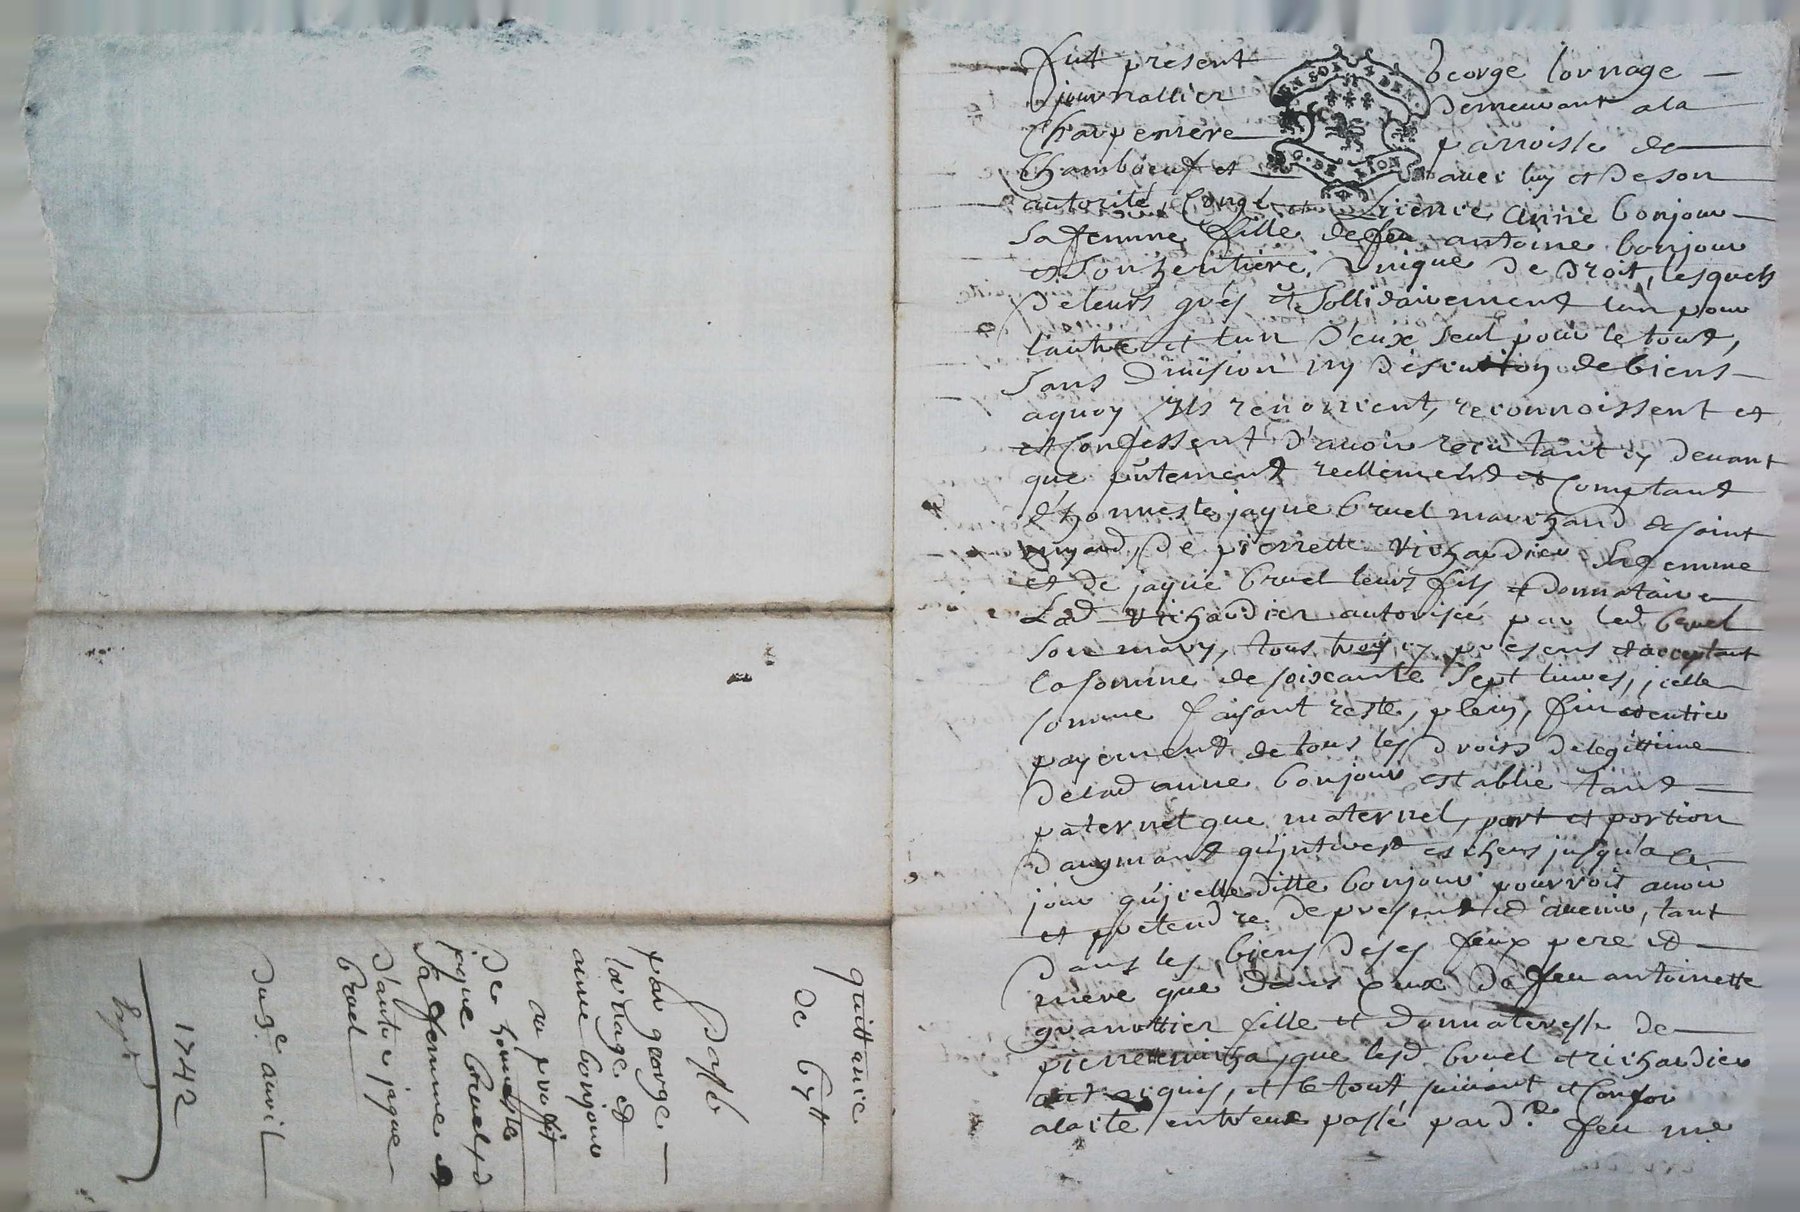 quittance
de 67 ₶
Passé
par george
tornage et
anne bonjour
au proffit
De honneste
jaque bruel et
sa femme et
d'autre jaque
bruel
Du 3e auril
1742
Fut présent George tornage
journallier Demeurant a la
Charpenière parroisse de
Chambœuf et auec luy et De son
autorité, Congé et Licence anne bonjour
sa femme fille de feu antoine bonjour
et son héritière unique De Droit, lesquels
De leurs gréz et sollidairement l'un pour
l'autre et l'un D'eux seul pour le tout,
sans Diuision ny Discution de biens
aquoy Ils renoncent, reconnoissent et
et Confessent D'auoir reçu tant cy Deuant
que pntement reellement et Comptant
d'honneste jaque bruel marchand de saint
De pierrette richardier sa femme
et de jaque bruel leurs fils et Donnataire
Lad richardier autorisée par led bruel
son mary, tous trois cy présens et acceptant
la somme de soixante sept liures, jcelle
somme faisant reste, plein, fin et entier
payement de tous les Droits De legittime
De lad anne bonjour establie tant
paternel que maternel, part et portion
D'augmant qu'interest escheus jusqu'à ce
jour qu'jcelle ditte bonjour pourroit auoir
et prétendre De présent et d'auenir, tant
Dans les biens De ses feux pere et
mère que Dans Ceux De feu antoinette
granottier fille et Donnateresse de
pierrette que lesd bruel et richardier
ont acquis, et le tout suiuant et Confor
a l'acte entr'eux passé pard.t feu me